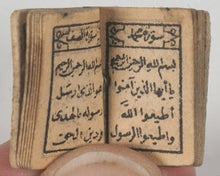 سورة محمد
بسم الله الرحمن الرحيم
يا أيها الذين آمنوا
أطيعوا الله
وأطيعوا الرسول
سورة الصف
بسم الله الرحمن الرحيم
هو الذي أرسل
رسوله بالهدى
ودين الحق